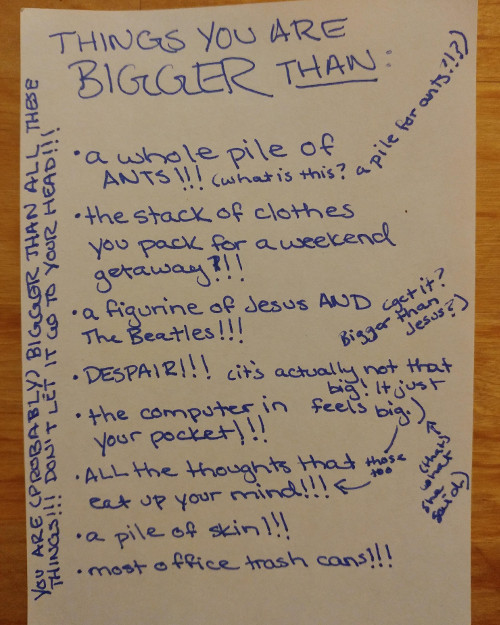 THINGS YOU ARE
BIGGER THAN:
• a whole pile of
ANTS!!! (what is this? a pile for ants?!?)
• the stack of clothes
you pack for a weekend
getaway?!!!
• a figurine of Jesus AND
The Beatles!!!
(get it?
Bigger than
Jesus?)
• DESPAIR!!! (it's actually not that
big! It just
feels big.)
(that's
she what
said)
• the computer in
your pocket!!!
• ALL the thoughts that
eat up your mind!!!
those
too
• a pile of skin!!!
• most office trash cans!!!
YOU ARE (PROBABLY) BIGGER THAN ALL THESE
THINGS!!! DON'T LET IT GO TO YOUR HEAD!!!